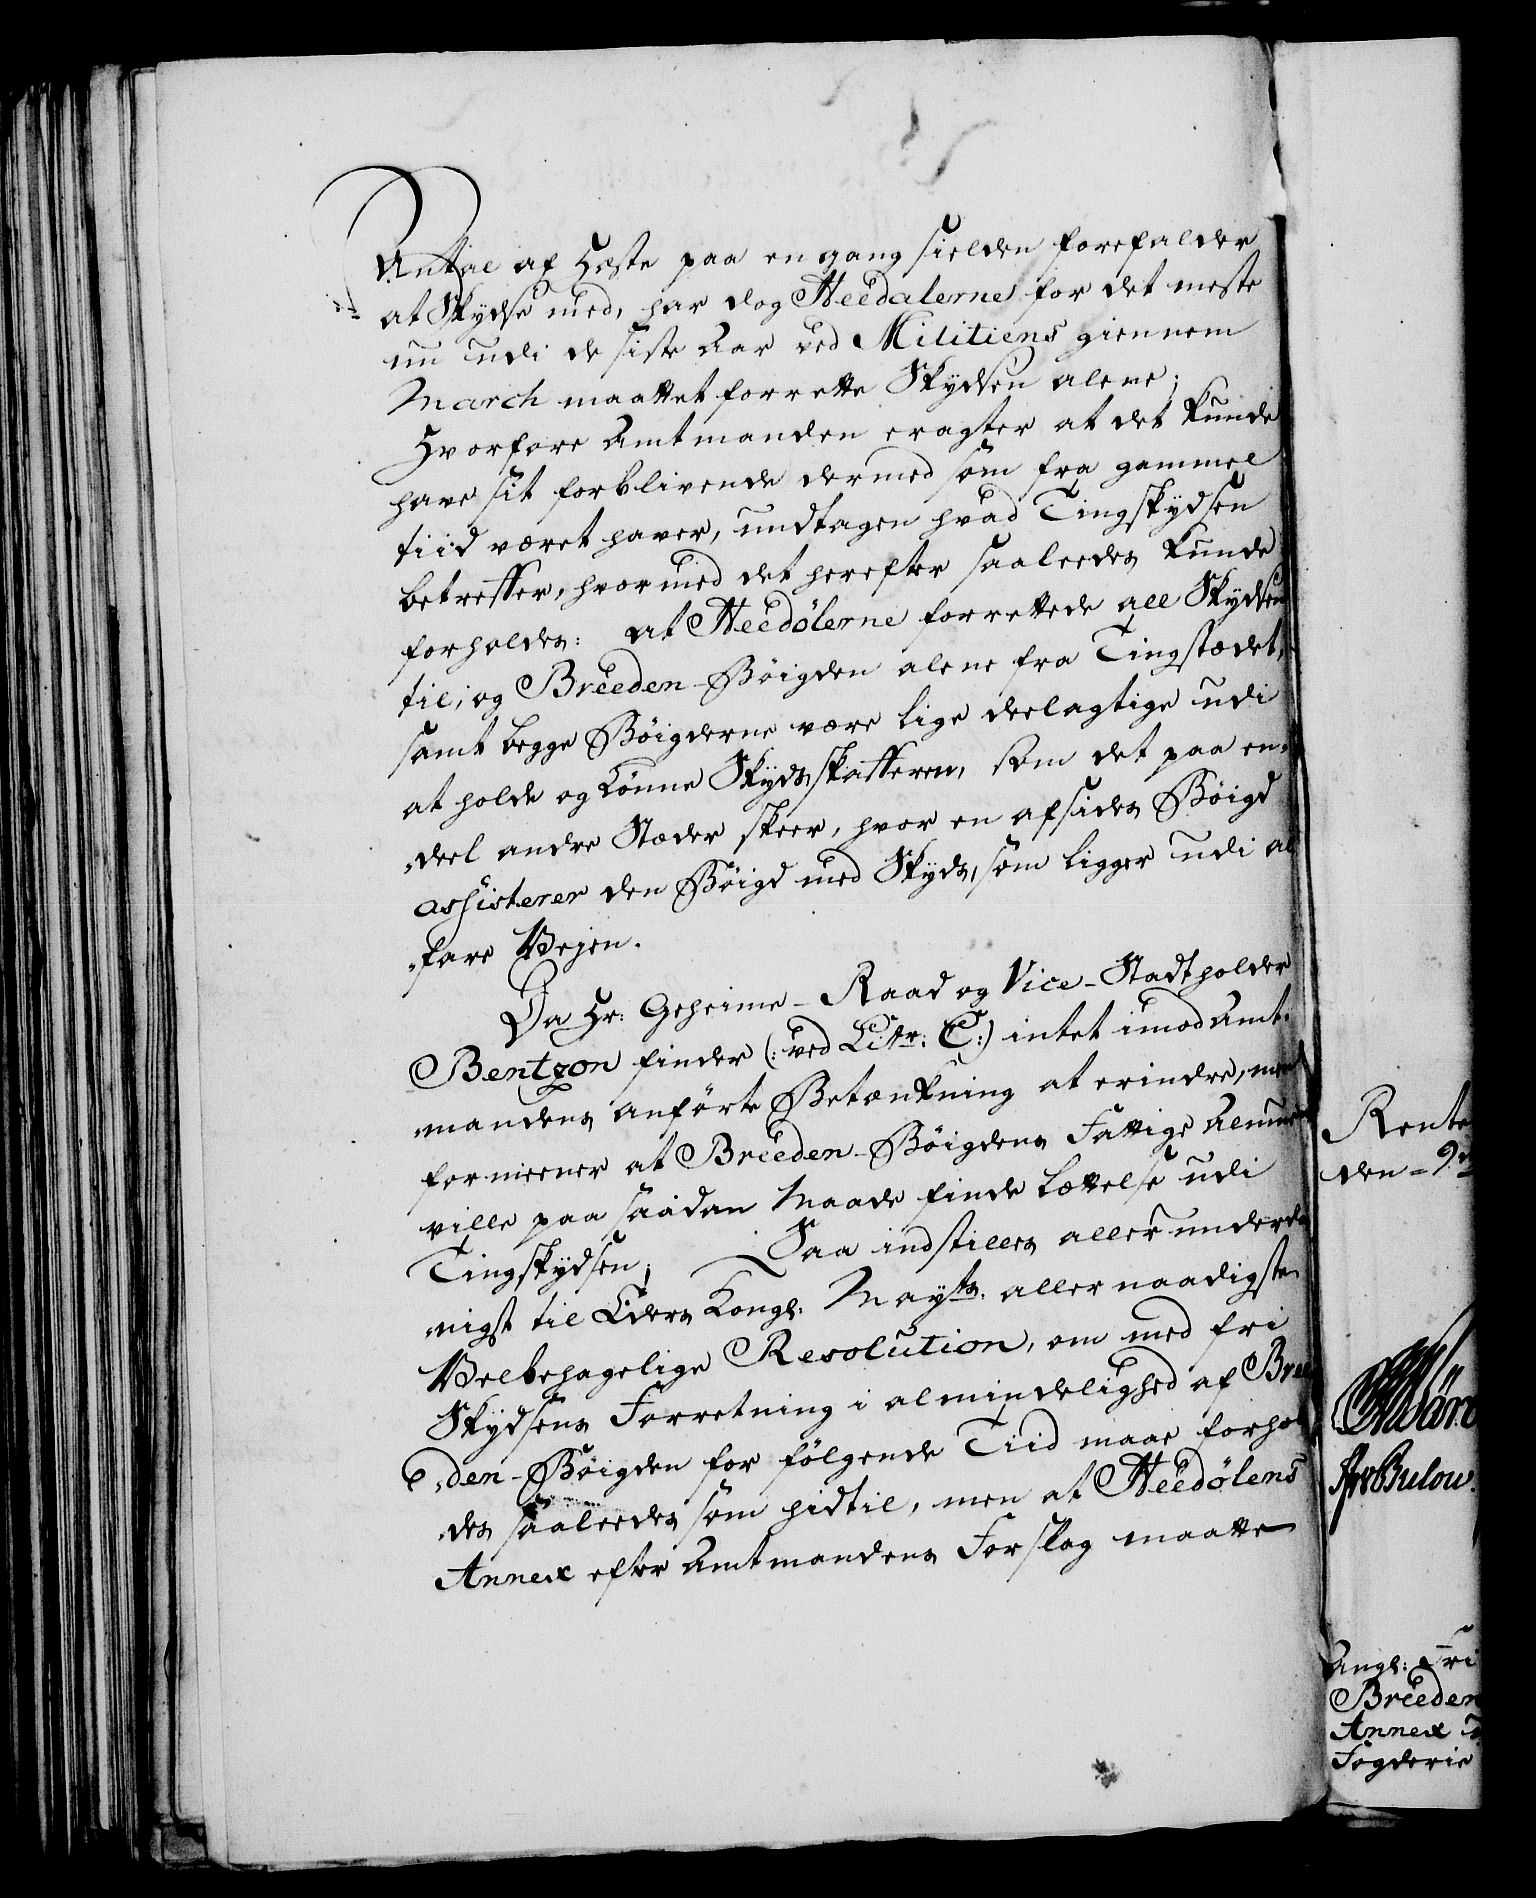 Antal af Heste paa en gang sielden forefalder
at Skydse med, har dog Heedalerne for det meste
nu udi de siste Aar ved Militiens giennem
March maattet forrette Skydsen alene;
Hvorfore Amtmanden eragter at det kunde
have sit forblivende dermed som fra gammel
tiid været haver, undtagen hvad Tingskydsen
betreffer, hvormed det herefter saaleedes kunde
forholdes: at Heedölerne forrettede all Skydsen
til, og Breeden-Böigden alene fra Tingstædet,
samt begge Böigderne være lige deelagtige udi
at holde og lönne Skydsskafferen, som det paa en-
deel andre Stæder skeer, hvor en afsides Böigd
assisterer den Böigd med Skyds, som ligger udi al-
fare Vejen.
Da Hr: Geheime-Raad og Vice-Stadtholder
Bentzon finder (: ved Litr: C:) intet imod Amt-
mandens anförte Betænkning at erindre, men
formeener at Breeden-Böigdens Fattige Almue
ville paa saadan Maade finde Lettelse udi
Tingskydsen; Saa indstilles allerunderda-
nigst til Eders Kongl: Mayts. allernaadigste
Velbehagelige Resolution, om med fri
Skydsens Forretning i almindelighed af Bree-
den-Böigden for fölgende Tiid maae forhol-
des saaleedes som hidtil, men at Heedölens
Annex efter Amtmandens Forslag maatte
Rente
den 9de
Bulow.
Angl: Fri
Breeden
Annex
Fogderie